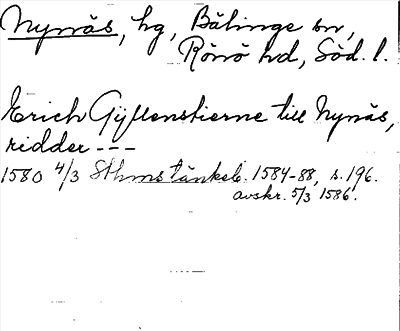 Nynäs, hg, Bälinge sn,
Rönö hd, Söd. l.
Erich Gyllenstierne till Nynäs,
ridder ---
1580 4/3 Sthms tänkeb. 1584-88, s. 196.
avskr. 5/3 1586.